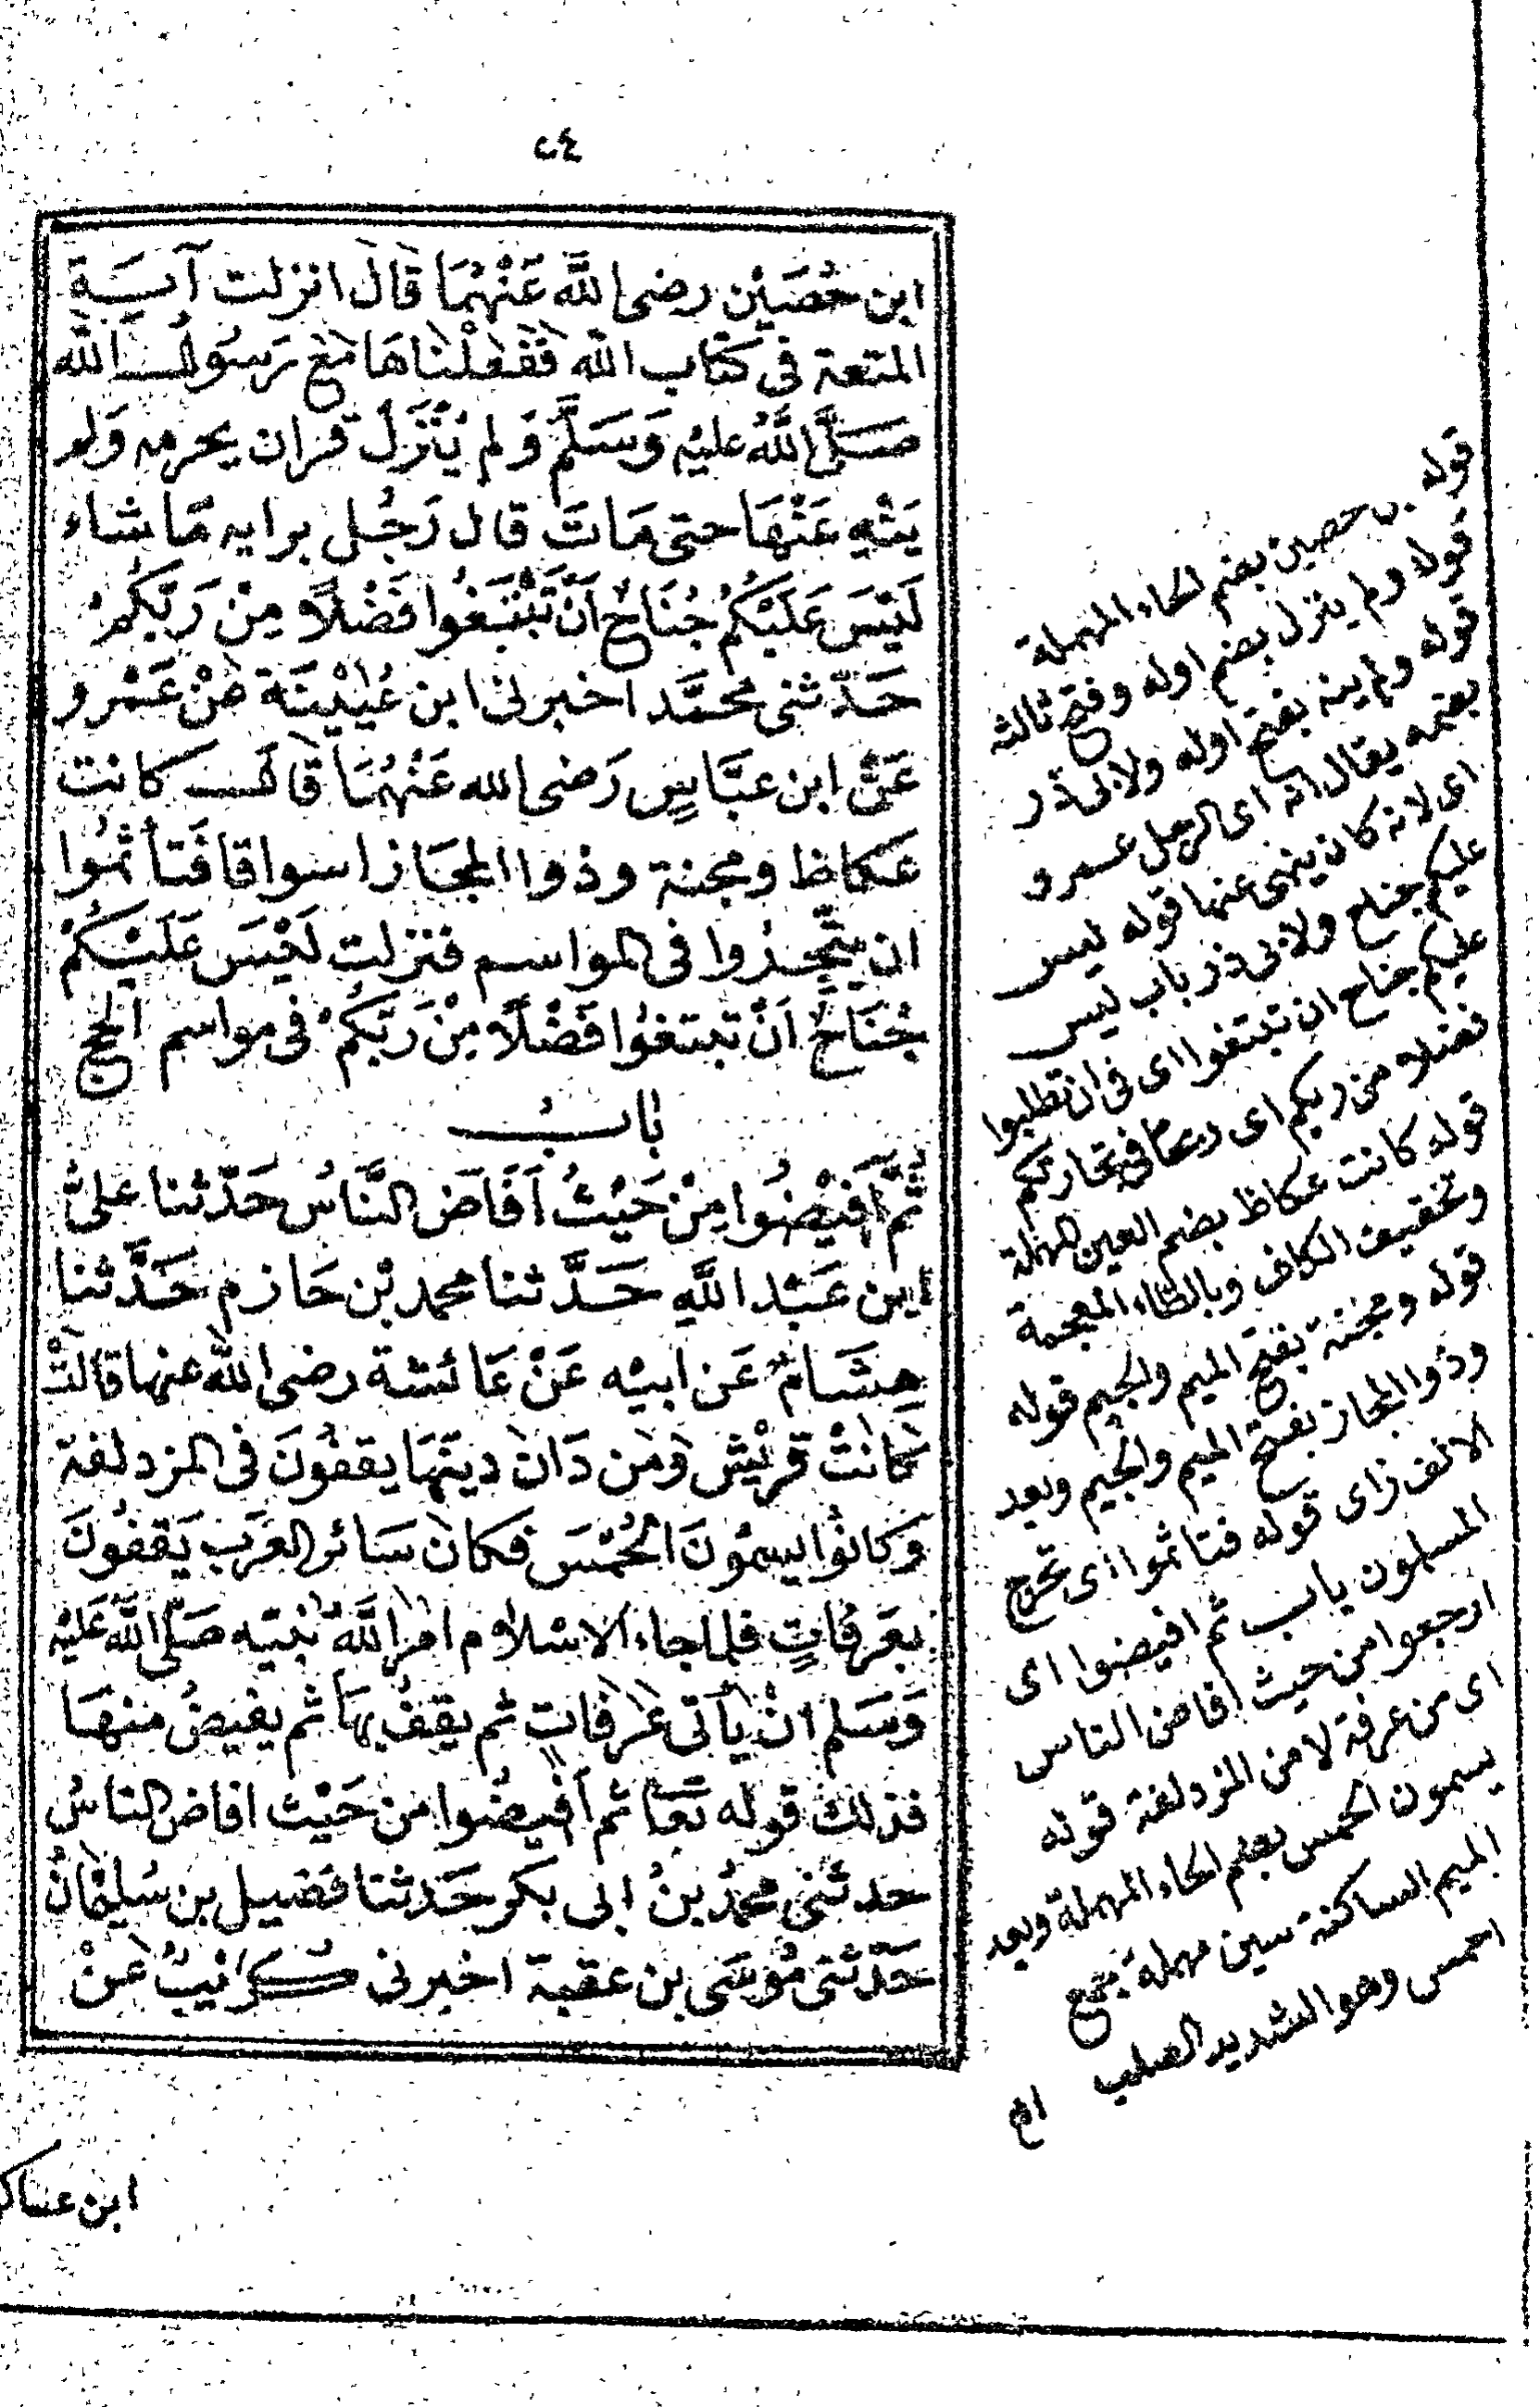 ٢٤
ابن حُصَيْن رضى اللَّه عَنْهُمَا قَالَ انزلت آيَة
المتعة فى كتاب الله فَفَعَلْنَاهَا مَعَ رَسُولِ الله
صَلَّى اللَّهُ عليْهِ وَسَلَّمَ وَلم يُنْزَلْ قرآن يحرمه وَلم
يَنْهِ عَنْهَا حتى مَاتَ قال رَجُل برايه مَا شاء
لَيْسَ عَلَيْكُمْ جُنَاحٌ اَنْ تَبْتَغُوا فَضْلًا مِنْ رَبِّكُمْ
حَدّثنى محمَّد اخبرنى ابن عُيَيْنَة عَنْ عَمْرو
عَنْ ابن عَبَّاسٍ رَضى الله عَنْهُمَا قَالَ كانت
عكاظ ومجنة وذوا المجَاز اسواقا فَتأثمُوا
ان يتّجروا فى المواسم فنزلت لَيْسَ عَلَيْكُمْ
جُنَاحٌ اَنْ تبتغوُا فَضْلًا مِنْ رَبِّكُمْ فى مواسم الحج
بابُ
ثُمَّ اَفيْضُوا مِنْ حَيْثُ اَفَاضَ النَّاسُ حَدّثنا علىُّ
ابن عَبْد اللَّهِ حَدَّثنا محمد بْن حَازم حَدَّثنا
هِشَامٌ عَن ابيْه عَنْ عَائشة رضى اللَّه عنها قالتْ
كانَتْ قرَيْش وَمن دَانَ دينَهَا يقفُونَ فى المزدلفة
وَكانوُا يسموُنَ الحُمْسَ فكانَ سَائر العَرَب يَقفُونَ
بعَرفَاتٍ فلما جاء الاسْلام امرَ اللَّه نبيّه صَلّى اللَّه عَليْهِ
وَسَلم انْ يأتى عَرفات ثم يقفُ بهَا ثم يفيضُ منهَا
فذلك قوله تَعَا ثم اَفيضُوا من حَيْث افاض الناسُ
حدثنى محمدُ بنُ ابى بكر حَدثنا فضيل بن سُليمَانُ
حَدّثنى مُوسَى بن عقبة اخبرنى كرَيْبُ عَنْ
قوله بن حصين بضم الحاء المهملة
قوله ولم ينزل بضم اوله وفتح ثالثه
قوله ولم ينه بفتح اوله ولابى ذر
بضمه يقال انه اى الرجل عمرو
اى لانه كان ينهى عنها قوله ليس
عليكم جناح ولابى ذر باب ليس
عليكم جناح ان تبتغوا اى فى ان تطلبوا
فضلا من ربكم اى ربحا فى تجارتكم
قوله كانت عكاظ بضم العين المهملة
وتخفيف الكاف وبالظاء المعجمة
قوله ومجنة بفتح الميم والجيم قوله
وذوا المجاز بفتح الميم والجيم وبعد
الالف زاى قوله فتاثموا اى تحرج
المسلمون باب ثم افيضوا اى
ارجعوا من حيث افاض الناس
اى من عرفة لا من المزدلفة قوله
يسمون الحمس بضم الحاء المهملة وبعد
الميم الساكنة سين مهملة جمع
احمس وهو الشديد الصلب
اه
ابن عساكر